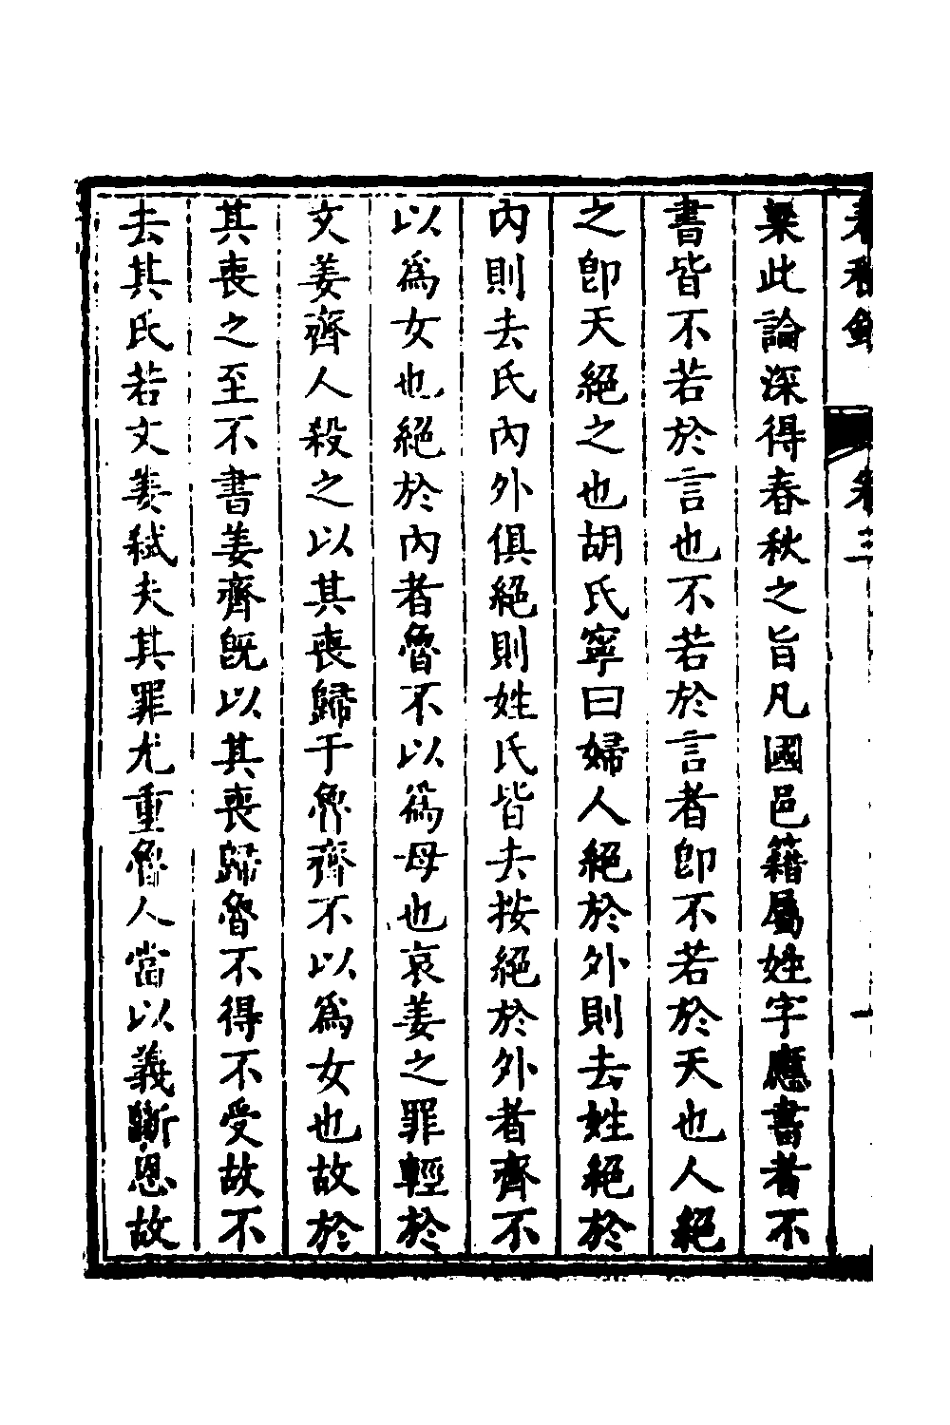 梁此論深得春秋之旨凡國邑籍屬姓字應書者不
書皆不若於言也不若於言者卽不若於天也人絕
之卽天絕之也胡氏寧曰婦人絕於外則去姓絕於
內則去氏內外俱絕則姓氏皆去按絕於外者齊不
以爲女也絕於內者魯不以爲母也哀姜之罪輕於
文姜齊人殺之以其喪歸于魯齊不以爲女也故於
其喪之至不書姜齊旣以其喪歸魯不得不受故不
去其氏若文姜弒夫其罪尤重魯人當以義斷恩故